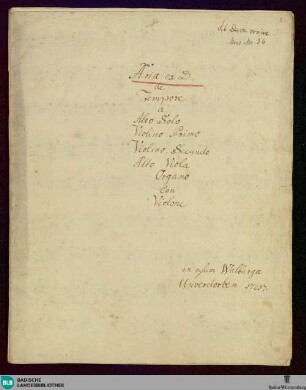 Aria ex D.
de
Tempore
à
Alto Solo
Violino Primo
Violino Secundo
Alto Viola
Organo
Con
Violone
in usum Walburga
Unverdorben
BLB BADISCHE
LANDESBIBLIOTHEK